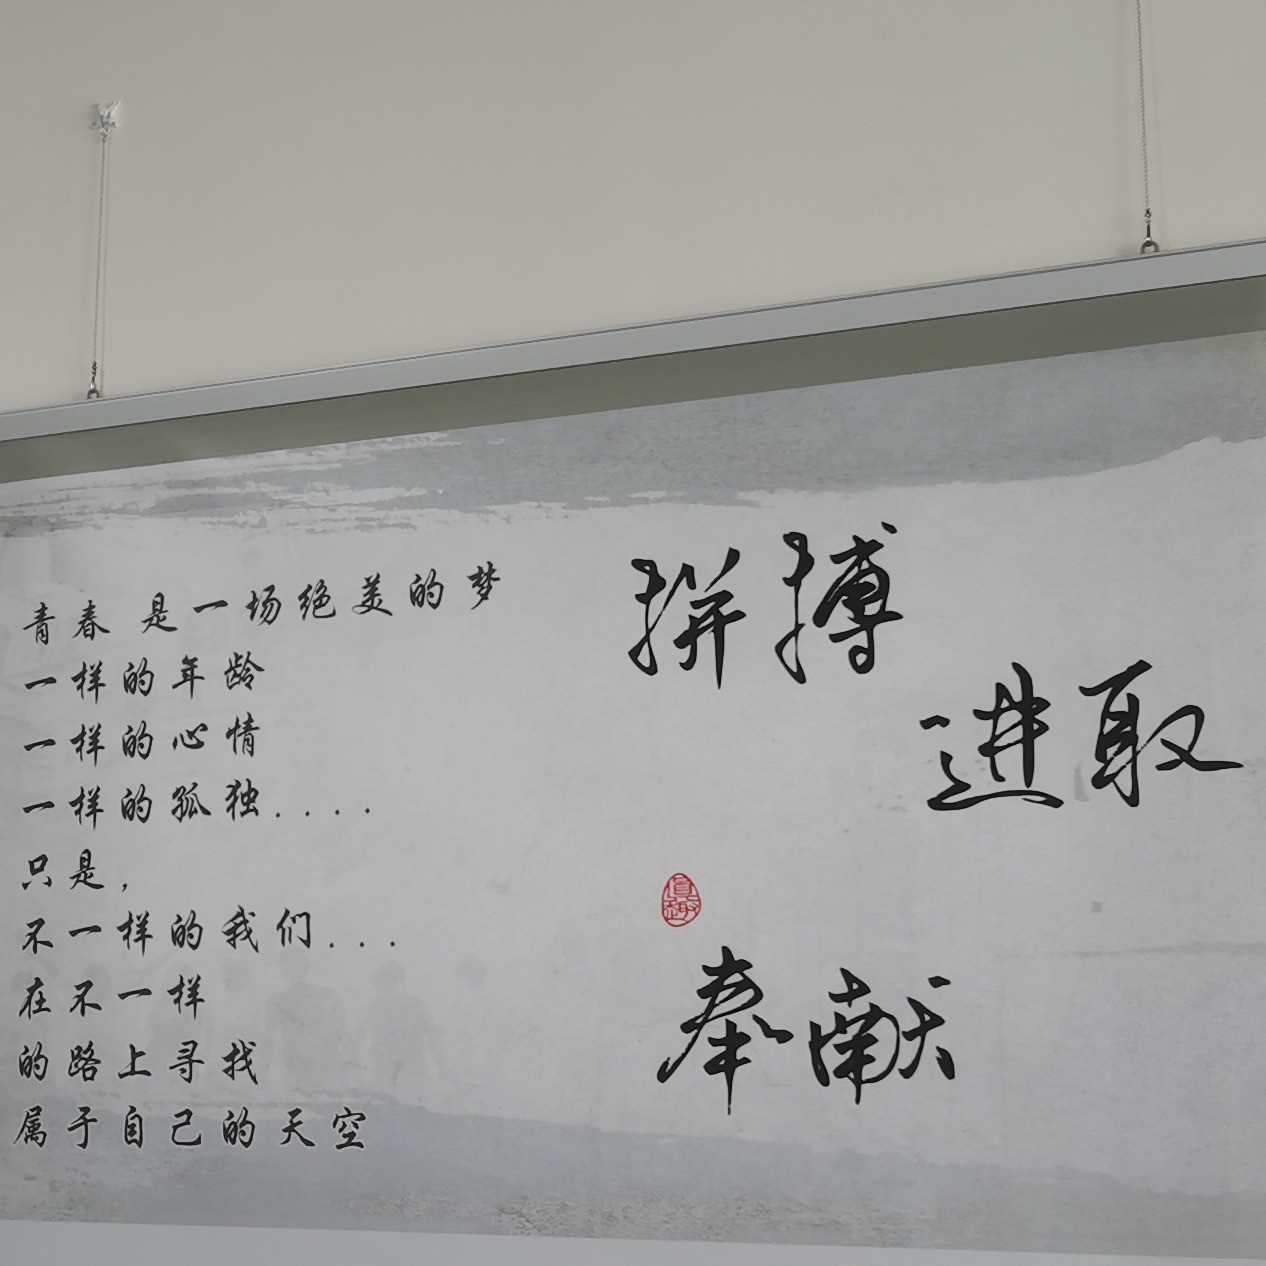 青春 是一场绝美的梦
一样的年龄
一样的心情
一样的孤独....
只是，
不一样的我们...
在不一样
的路上寻找
属于自己的天空
拼搏
进取
奉献